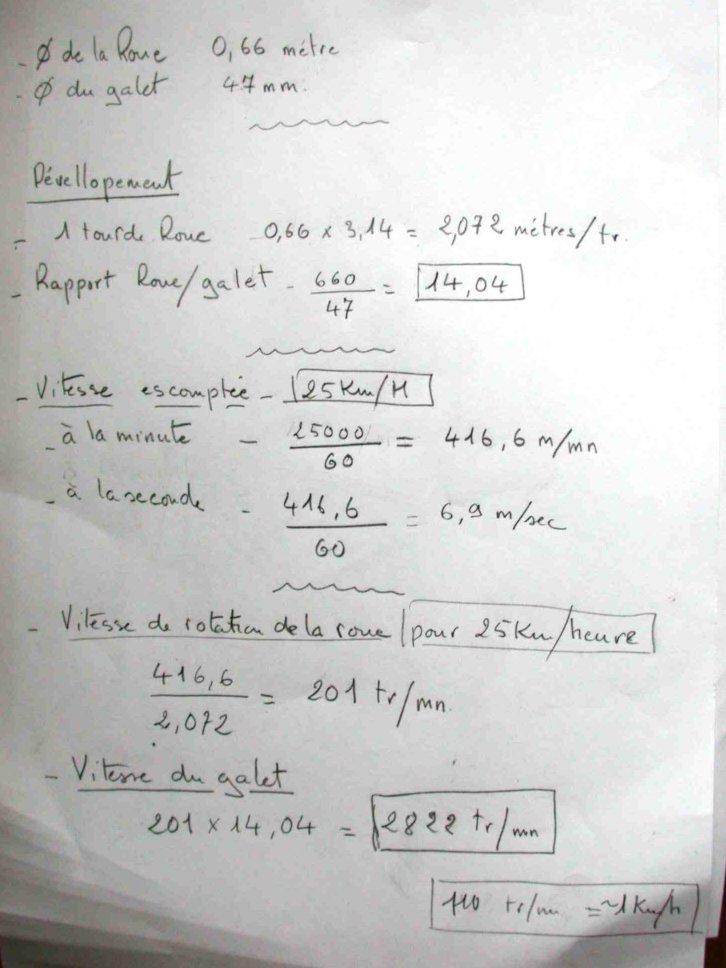 - Ø de la Roue 0,66 métre
- Ø du galet 47 mm.
Dévellopement
- 1 tour de Roue 0,66 x 3,14 = 2,072 métres/tr.
- Rapport Roue/galet - 660/47 = 14,04
- Vitesse escomptée - 25 Km/H
- à la minute - 25000/60 = 416,6 m/mn
- à la seconde - 416,6/60 = 6,9 m/sec
- Vitesse de rotation de la roue pour 25 Km/heure
416,6/2,072 = 201 tr/mn.
- Vitesse du galet
201 x 14,04 = 2822 tr/mn
110 tr/mn = ~1 Km/h